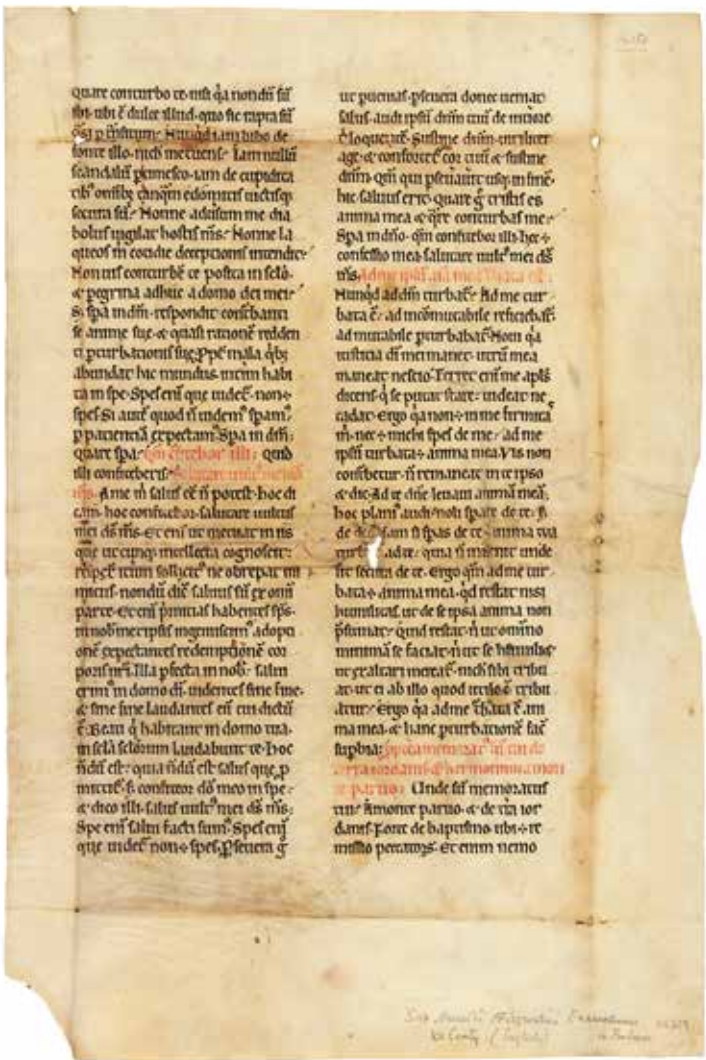 quare conturbo te. nisi qa nondū sū
ibi. ubi ē dulce illud. quo sic rapta sū
iam bibo de
fonte illo. nich metuens. iam nullū
scandalū iam de cupidita
tib omīb; tanqm edomitis uictisq
secura sū. Nonne aduersum me dia
bolus uigilat hostis ms. Nonne la
queos m cotidie deceptionis intendit.
Non uis conturbē te posita in sclo.
& pegrina adhuc a domo dei mei.
S; spa in dm̄. respondit conturbanti
se anime sue. & quasi rationē redden
ti pturbationis sue. ppt mala qb;
abundat hic mundus. interim habi
ta in spe. Spes eni que uidet. non ÷
spes. Si autē quod ñ uidem spam.
p patientiā expectam. Spa in dm̄.
quare spa. Qm cōfitebor illi. Quid
illi confiteberis. Salutare uult mei ds
ms. A me m salus eē ñ potest. hoc di
cam. hoc confitebor. salutare uultus
mei ds ms. Et eni ut metuat in his
que utcunq; intellecta cognoscit.
itum sollicit ne obrepat ini
micus. nondū dic̄ saluus sū ex omi
parte. Et eni pmicias habentes sps.
in nobmetipsis ingemiscim adopti
onē expectantes redemptionē cor
poris nri. Illa pfecta in nob. salu
erim in domo di. uidentes sine fine.
& sine fine laudantes eū cui dictū
ē. Beati q habitant in domo tua.
in scla sclorum laudabunt te. hoc
ñdū est. quia ñdū est salus que p
mittit. s; confiteor dō meo in spe.
& dico illi. salus uult mei ds ms.
Spe eni salui facti sum. Spes eni
que uidet non ÷ spes. Pseuera g
ut puenias. pseuera donec ueniat
salus. audi ipsū dnm tuū de intiore
loquetē. Sustine dnm. uirilit
age. & confortet cor tuū & sustine
dnm. Qm qui pseuauit usq; in finē.
hic saluus erit. Quare g tristis es
anima mea & qre conturbas me.
Spa in dño. qm confitebor illi. hec ÷
confessio mea. salutare uult mei ds
ms. Ad me ipsū aia mea turbata est.
Nunqd ad dm turbat. Ad me tur
bata ē. ad incōmutabile reficiebat.
ad mutabile pturbabat. Noui qa
iusticia di mei manet. utrū mea
maneat nescio. Terret eni me apls
dicens. q se putat stare. uideat ne
cadat. Ergo qa non ÷ in me firmitas
m. nec ÷ michi spes de me. ad me
ipsū turbata ÷ anima mea. Vis non
conturbetur. ñ remaneat in te ipso
& dic. Ad te dñe leuaui animā meā.
hoc plani audi. noli spare de te. s;
de dō Nam si spas de te. anima tua
ad te. quia ñ inuenit unde
sit secura de te. Ergo qm ad me tur
bata ÷ anima mea. qd restat nisi
humilitas. ut de se ipsa anima non
psumat. Quid restat. ñ ut omino
minimā se faciat. ñ ut se humiliet
ut exaltari mereat. nich sibi tribu
at. ut ei ab illo quod utile ē tribu
atur. Ergo qa ad me turbata ē ani
ma mea. & hanc pturbationē facit
supbia. pptea memorat sū tui de
terra iordanis & hermoniim a monte
paruo. Unde sū memoratus
tui. A monte paruo. & de tra ior
danis. Forte de baptismo. ubi ÷ re
missio peccatorȝ. Et enim nemo